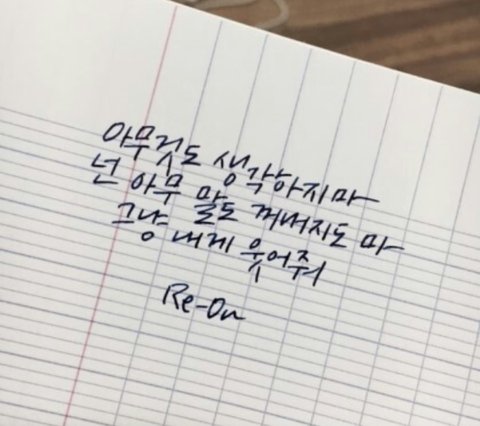 아무것도 생각하지마
넌 아무 말도 꺼버지도 마
그냥 내게 웃어줘
Re-On